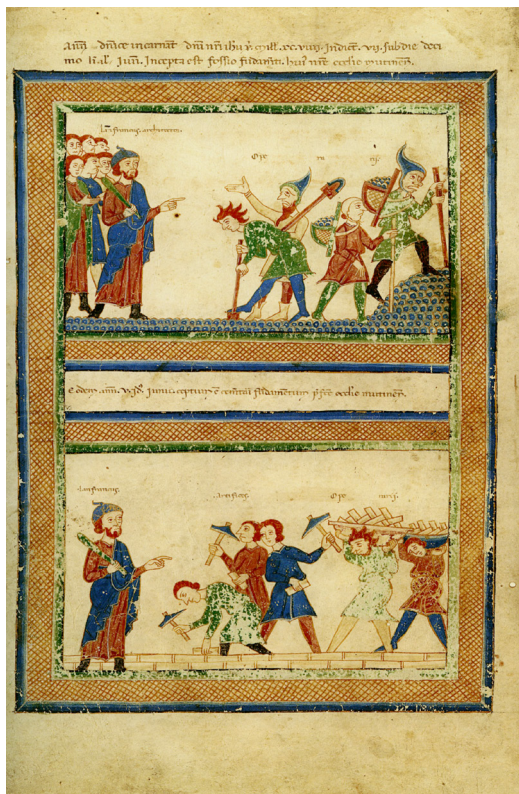 dnice incarnat dni nri ihu mill. xc. viiii. Indict. vii. sub die deci
mo kal. Iun. Incepta est fossio fudamti. hui nre ecclie mutinen.
Lanfrancus architector.
Ope ra rij
Eodem ann. v id. Iunii ceptum e fudamentum ecclie mutinen.
Lanfrancus.
Artifices
Ope rarii